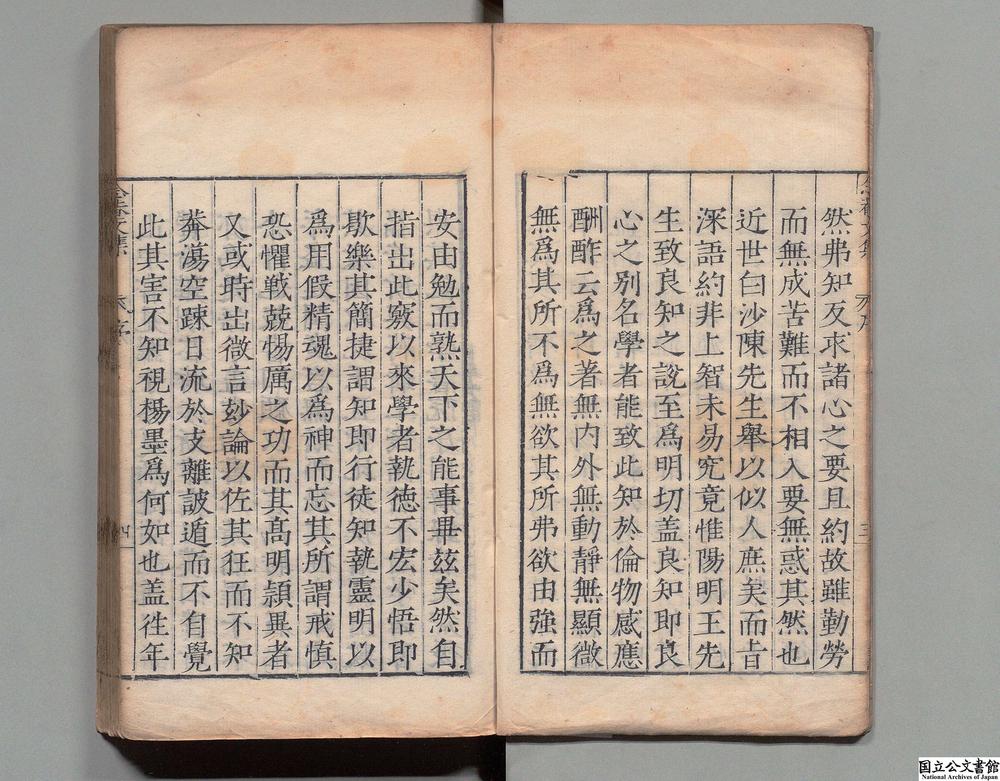 然弗知反求諸心之要且約故雖勤勞
而無成苦難而不相入要無惑其然也
近世白沙陳先生舉以似人庶矣而㫖
深語約非上智未易究竟惟陽明王先
生致良知之說至爲明切盖良知即良
心之别名學者能致此知於倫物感應
酬酢云爲之著無内外無動靜無顯微
無爲其所不爲無欲其所弗欲由強而
安由勉而熟天下之能事畢兹矣然自
指出此竅以來學者執德不宏少悟即
歇樂其簡捷謂知即行徒知執靈明以
爲用假精魂以爲神而忘其所謂戒慎
恐懼戰兢惕厲之功而其髙明頴異者
又或時出微言玅論以佐其狂而不知
莾蕩空踈日流於支離詖遁而不自覺
此其害不知視楊墨爲何如也盖徃年
序
四
国立公文書館
National Archives of Japan